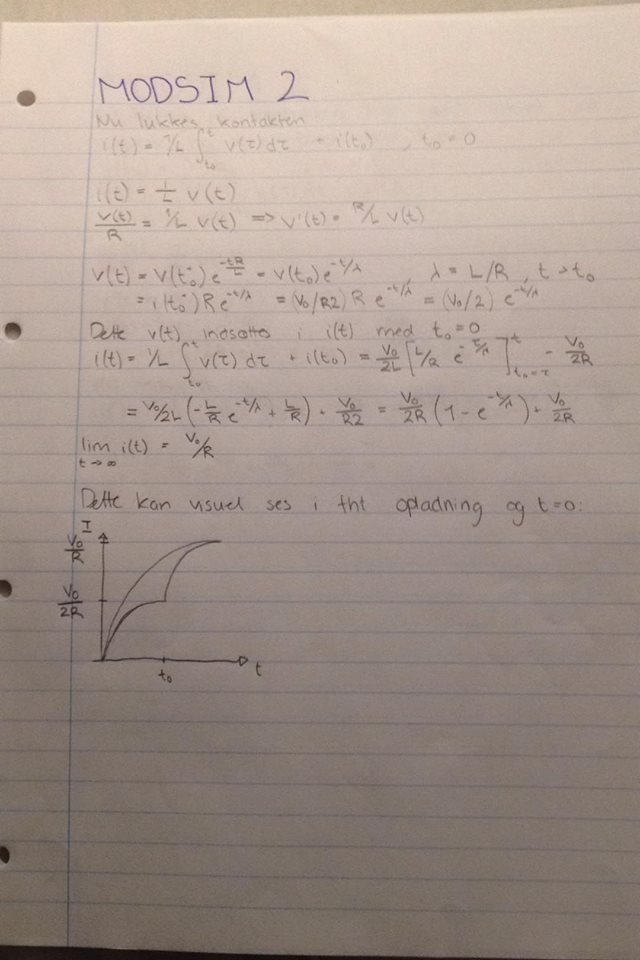 MODSIM 2
Nu lukkes kontakten
i(t) = 1/L ∫_{t₀}^{t} v(τ) dτ + i(t₀) , t₀ = 0
i(t) = 1/L v(t)
v(t)/R = 1/L v(t) => v'(t) = R/L v(t)
v(t) = v(t₀⁻) e^{-tR/L} = v(t₀) e^{-t/λ} , λ = L/R , t > t₀
= i(t₀⁻) R e^{-t/λ} = (V₀/R2) R e^{-t/λ} = (V₀/2) e^{-t/λ}
Dette v(t) indsættes i i(t) med t₀ = 0
i(t) = 1/L ∫_{t₀}^{t} v(τ) dτ + i(t₀) = V₀/2L [L/R e^{-τ/λ}]_{t₀=τ}^{t} - V₀/2R
= V₀/2L (-L/R e^{-t/λ} + L/R) + V₀/R2 = V₀/2R (1 - e^{-t/λ}) + V₀/2R
lim i(t) = V₀/R
t → ∞
Dette kan ses i fht opladning og t=0:
I
V₀/R
V₀/2R
t₀
t